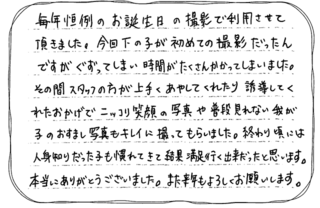 毎年恒例のお誕生日の撮影で利用させて
頂きました。今回下の子が初めての撮影だったん
ですがぐずってしまい時間がたくさんかかってしまいました。
その間スタッフの方が上手くあやしてくれたり誘導してく
れたおかげでニッコリ笑顔の写真や普段見れない我が
子のおすまし写真もキレイに撮ってもらいました。終わり頃には
人見知りだった子も慣れてきて結果満足が行く出来だったと思います。
本当にありがとうございました。また来年もよろしくお願いします。